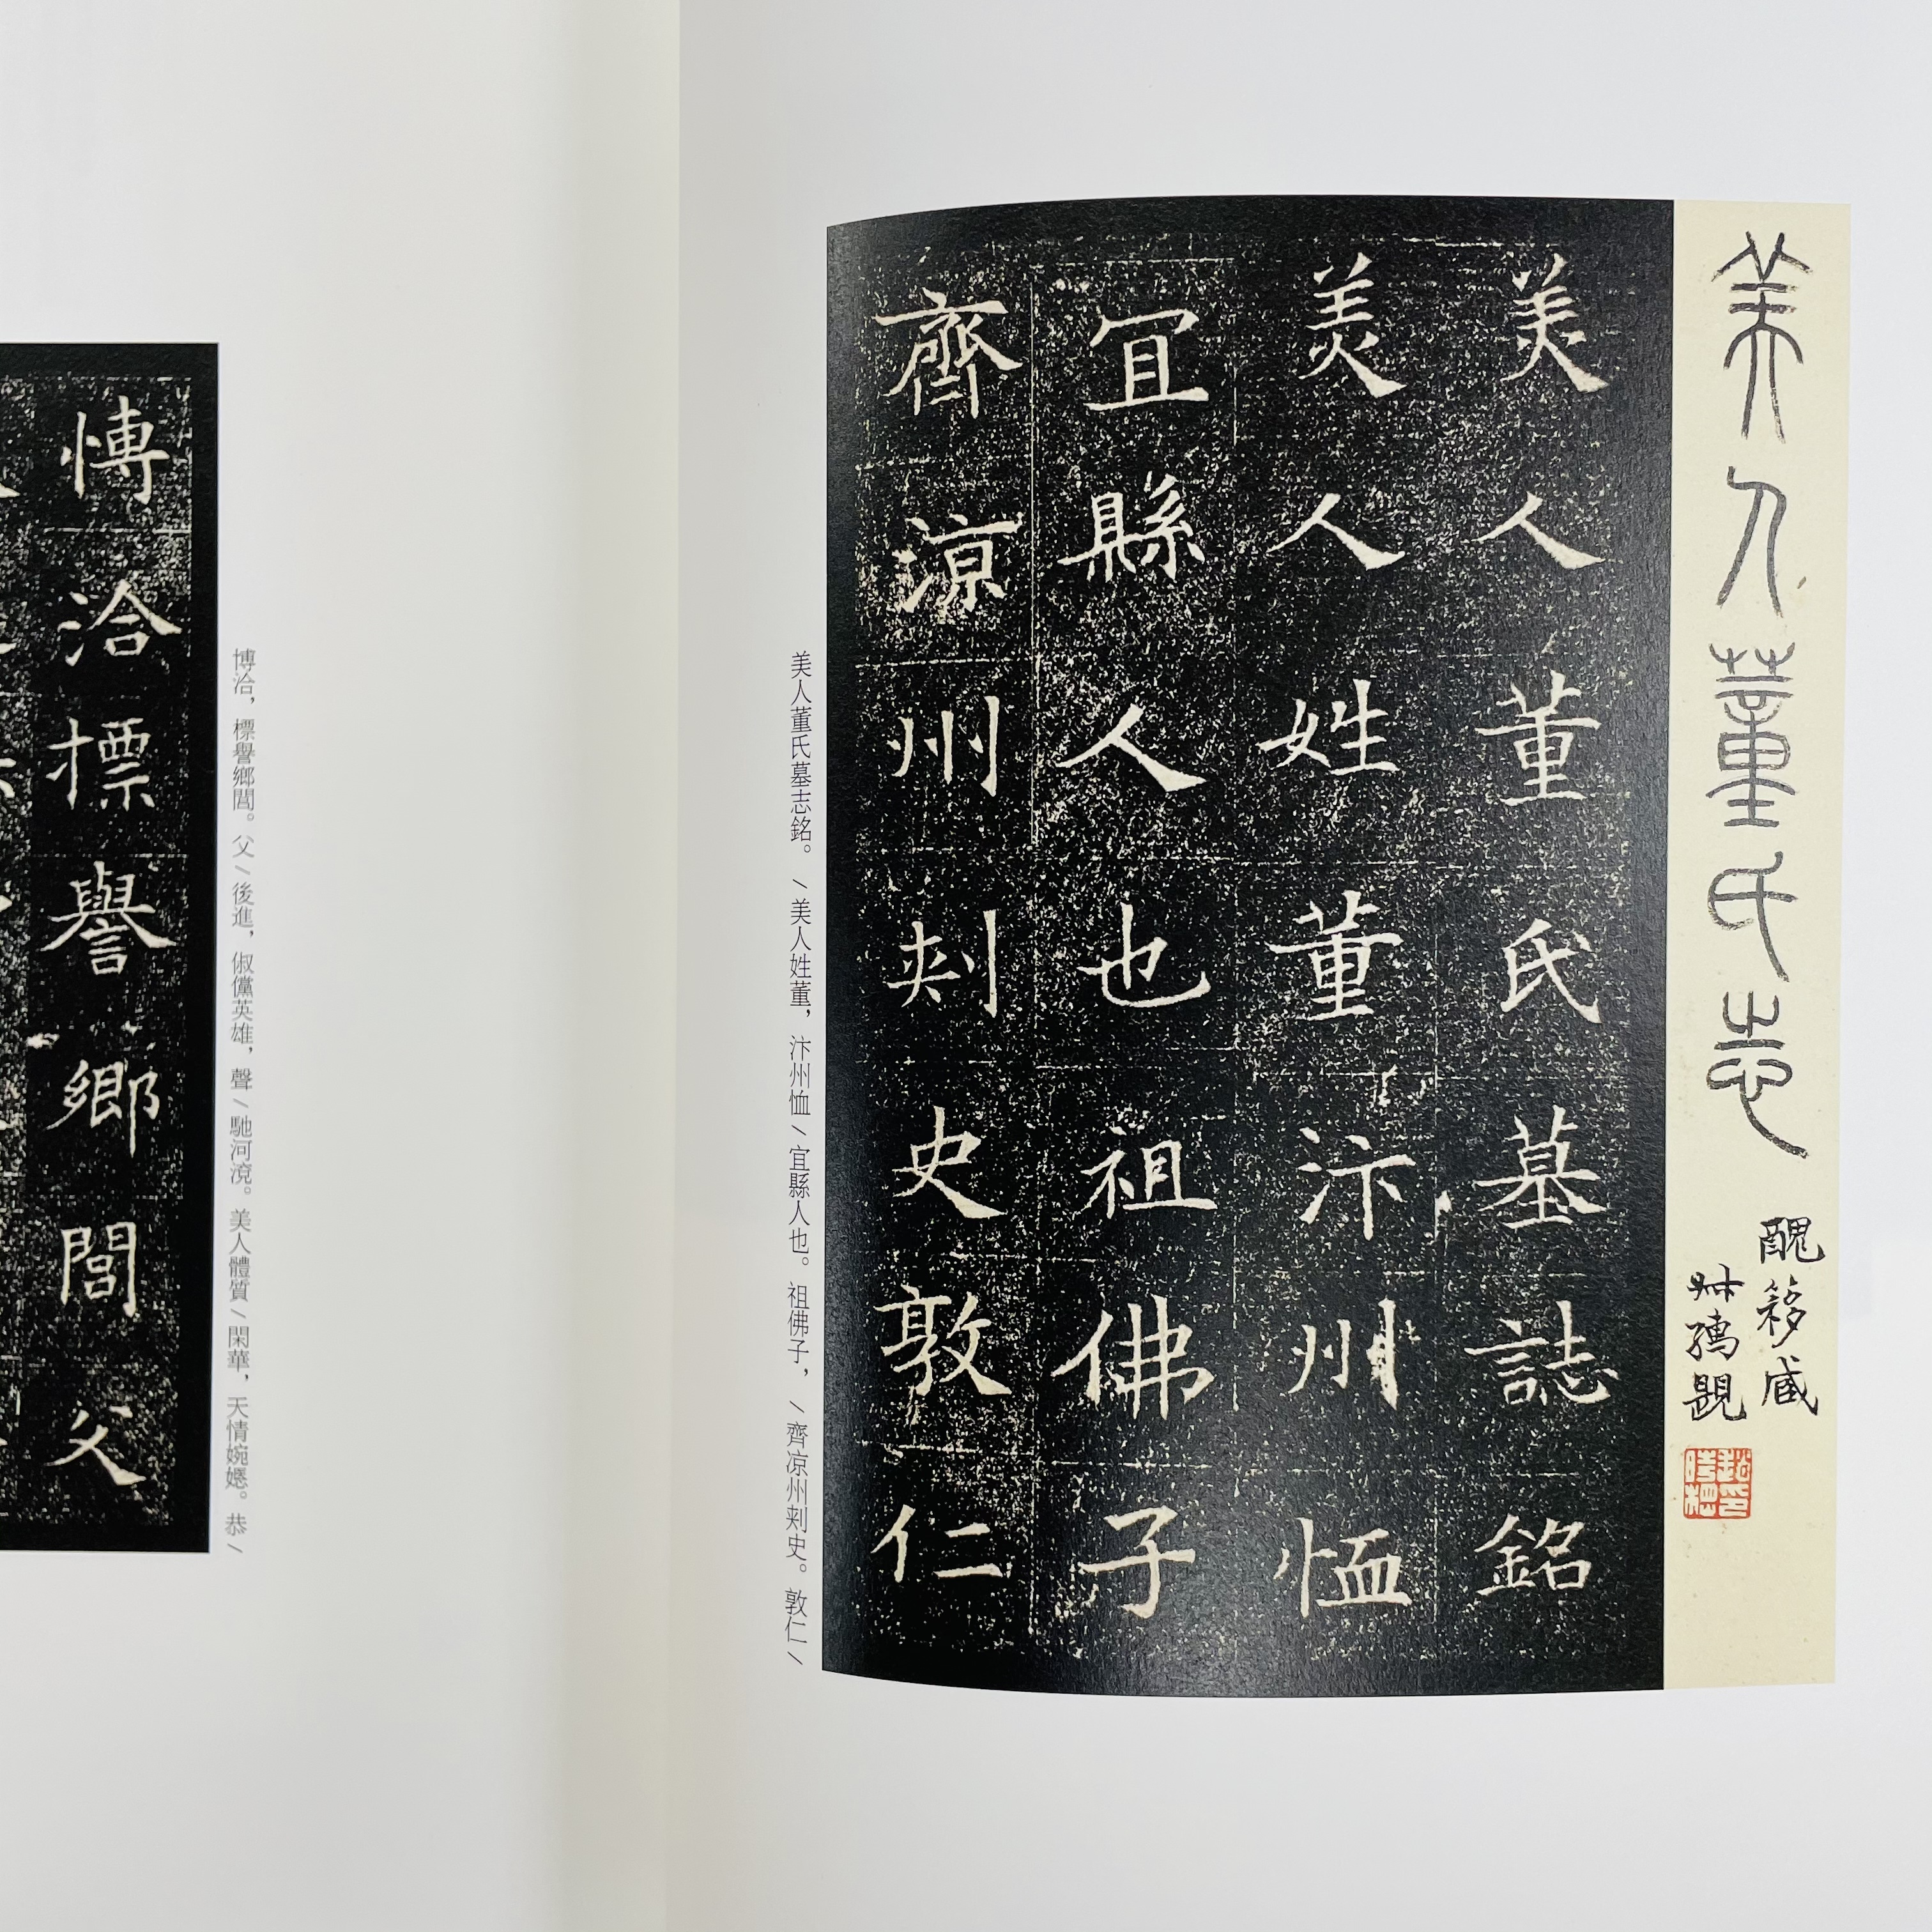 美人董氏志
醜簃藏
叔孺題
美人董氏墓誌銘
美人姓董汴州恤
宜縣人也祖佛子
齊涼州刾史敦仁
美人董氏墓志銘。\美人姓董，汴州恤\宜縣人也。祖佛子，\齊涼州刾史。敦仁\
博洽標譽鄉閭父
博洽，標譽鄉閭。父\後進，俶儻英雄，聲\馳河渷。美人體質\閑華，天情婉嫕。恭\